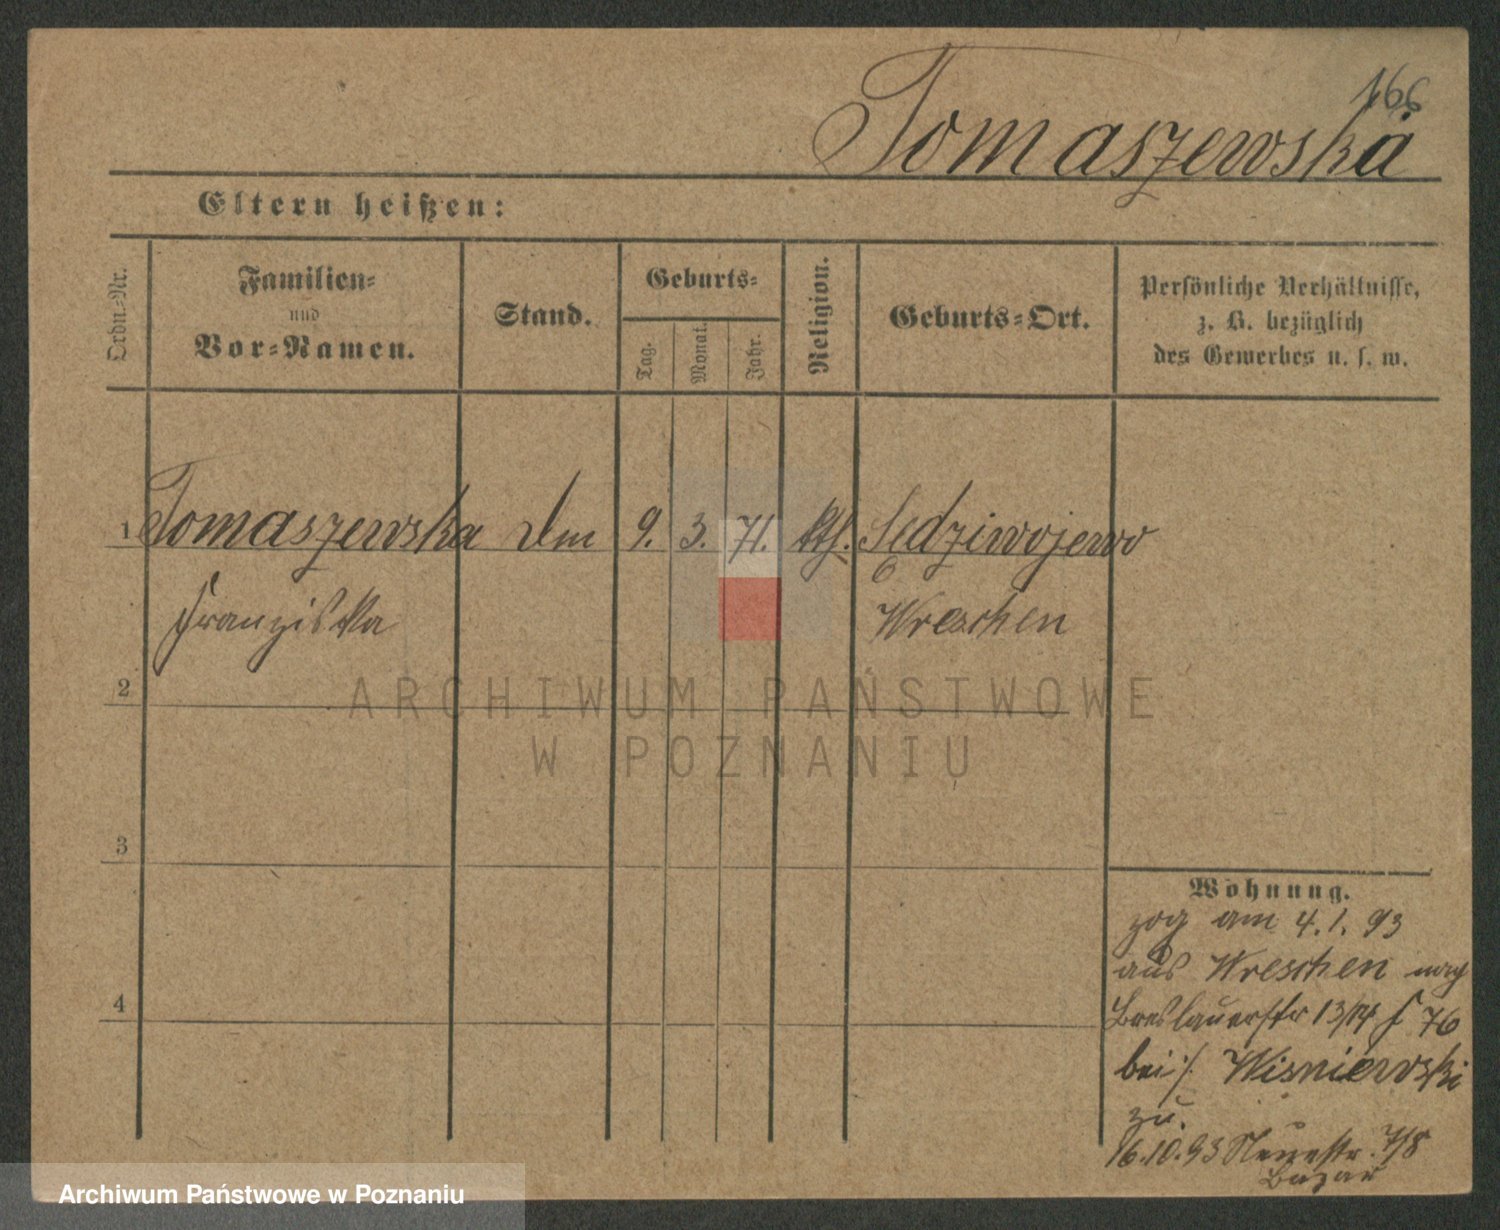 166
Tomaszewska
Eltern heißen:
Ordn.-Nr.
Familien-
und
Vor-Namen.
Stand.
Geburts-
Tag.
Monat.
Jahr.
Religion.
Geburts-Ort.
Persönliche Verhältnisse,
z. B. bezüglich
des Gewerbes u. s. w.
1 Tomaszewska 9. 3. 71. kth. Sedziwojewo
Franziska Wreschen
2
ARCHIWUM PAŃSTWOWE
W POZNANIU
3
Wohnung.
zog am 4.1.93
aus Wreschen nach
4
Breslauerstr 13/14 f 76
bei Wisniewski
zu.
16.10.93 Neuestr. 7/8
Bazar
Archiwum Państwowe w Poznaniu